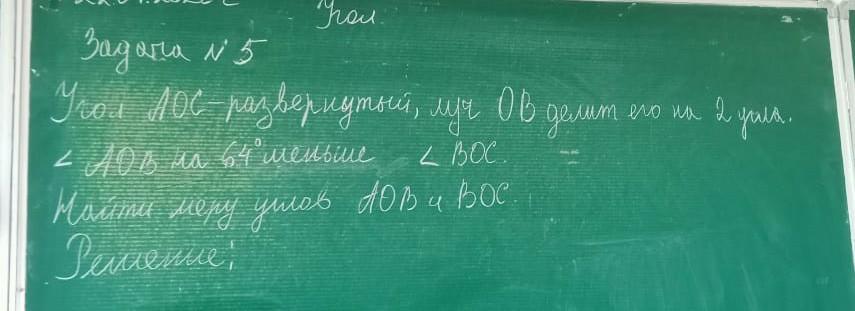 Угол
Задача № 5
Угол АОС-развернутый, луч ОВ делит его на 2 угла.
∠ АОВ на 64° меньше ∠ ВОС. =
Найти меру углов АОВ и ВОС.
Решение: